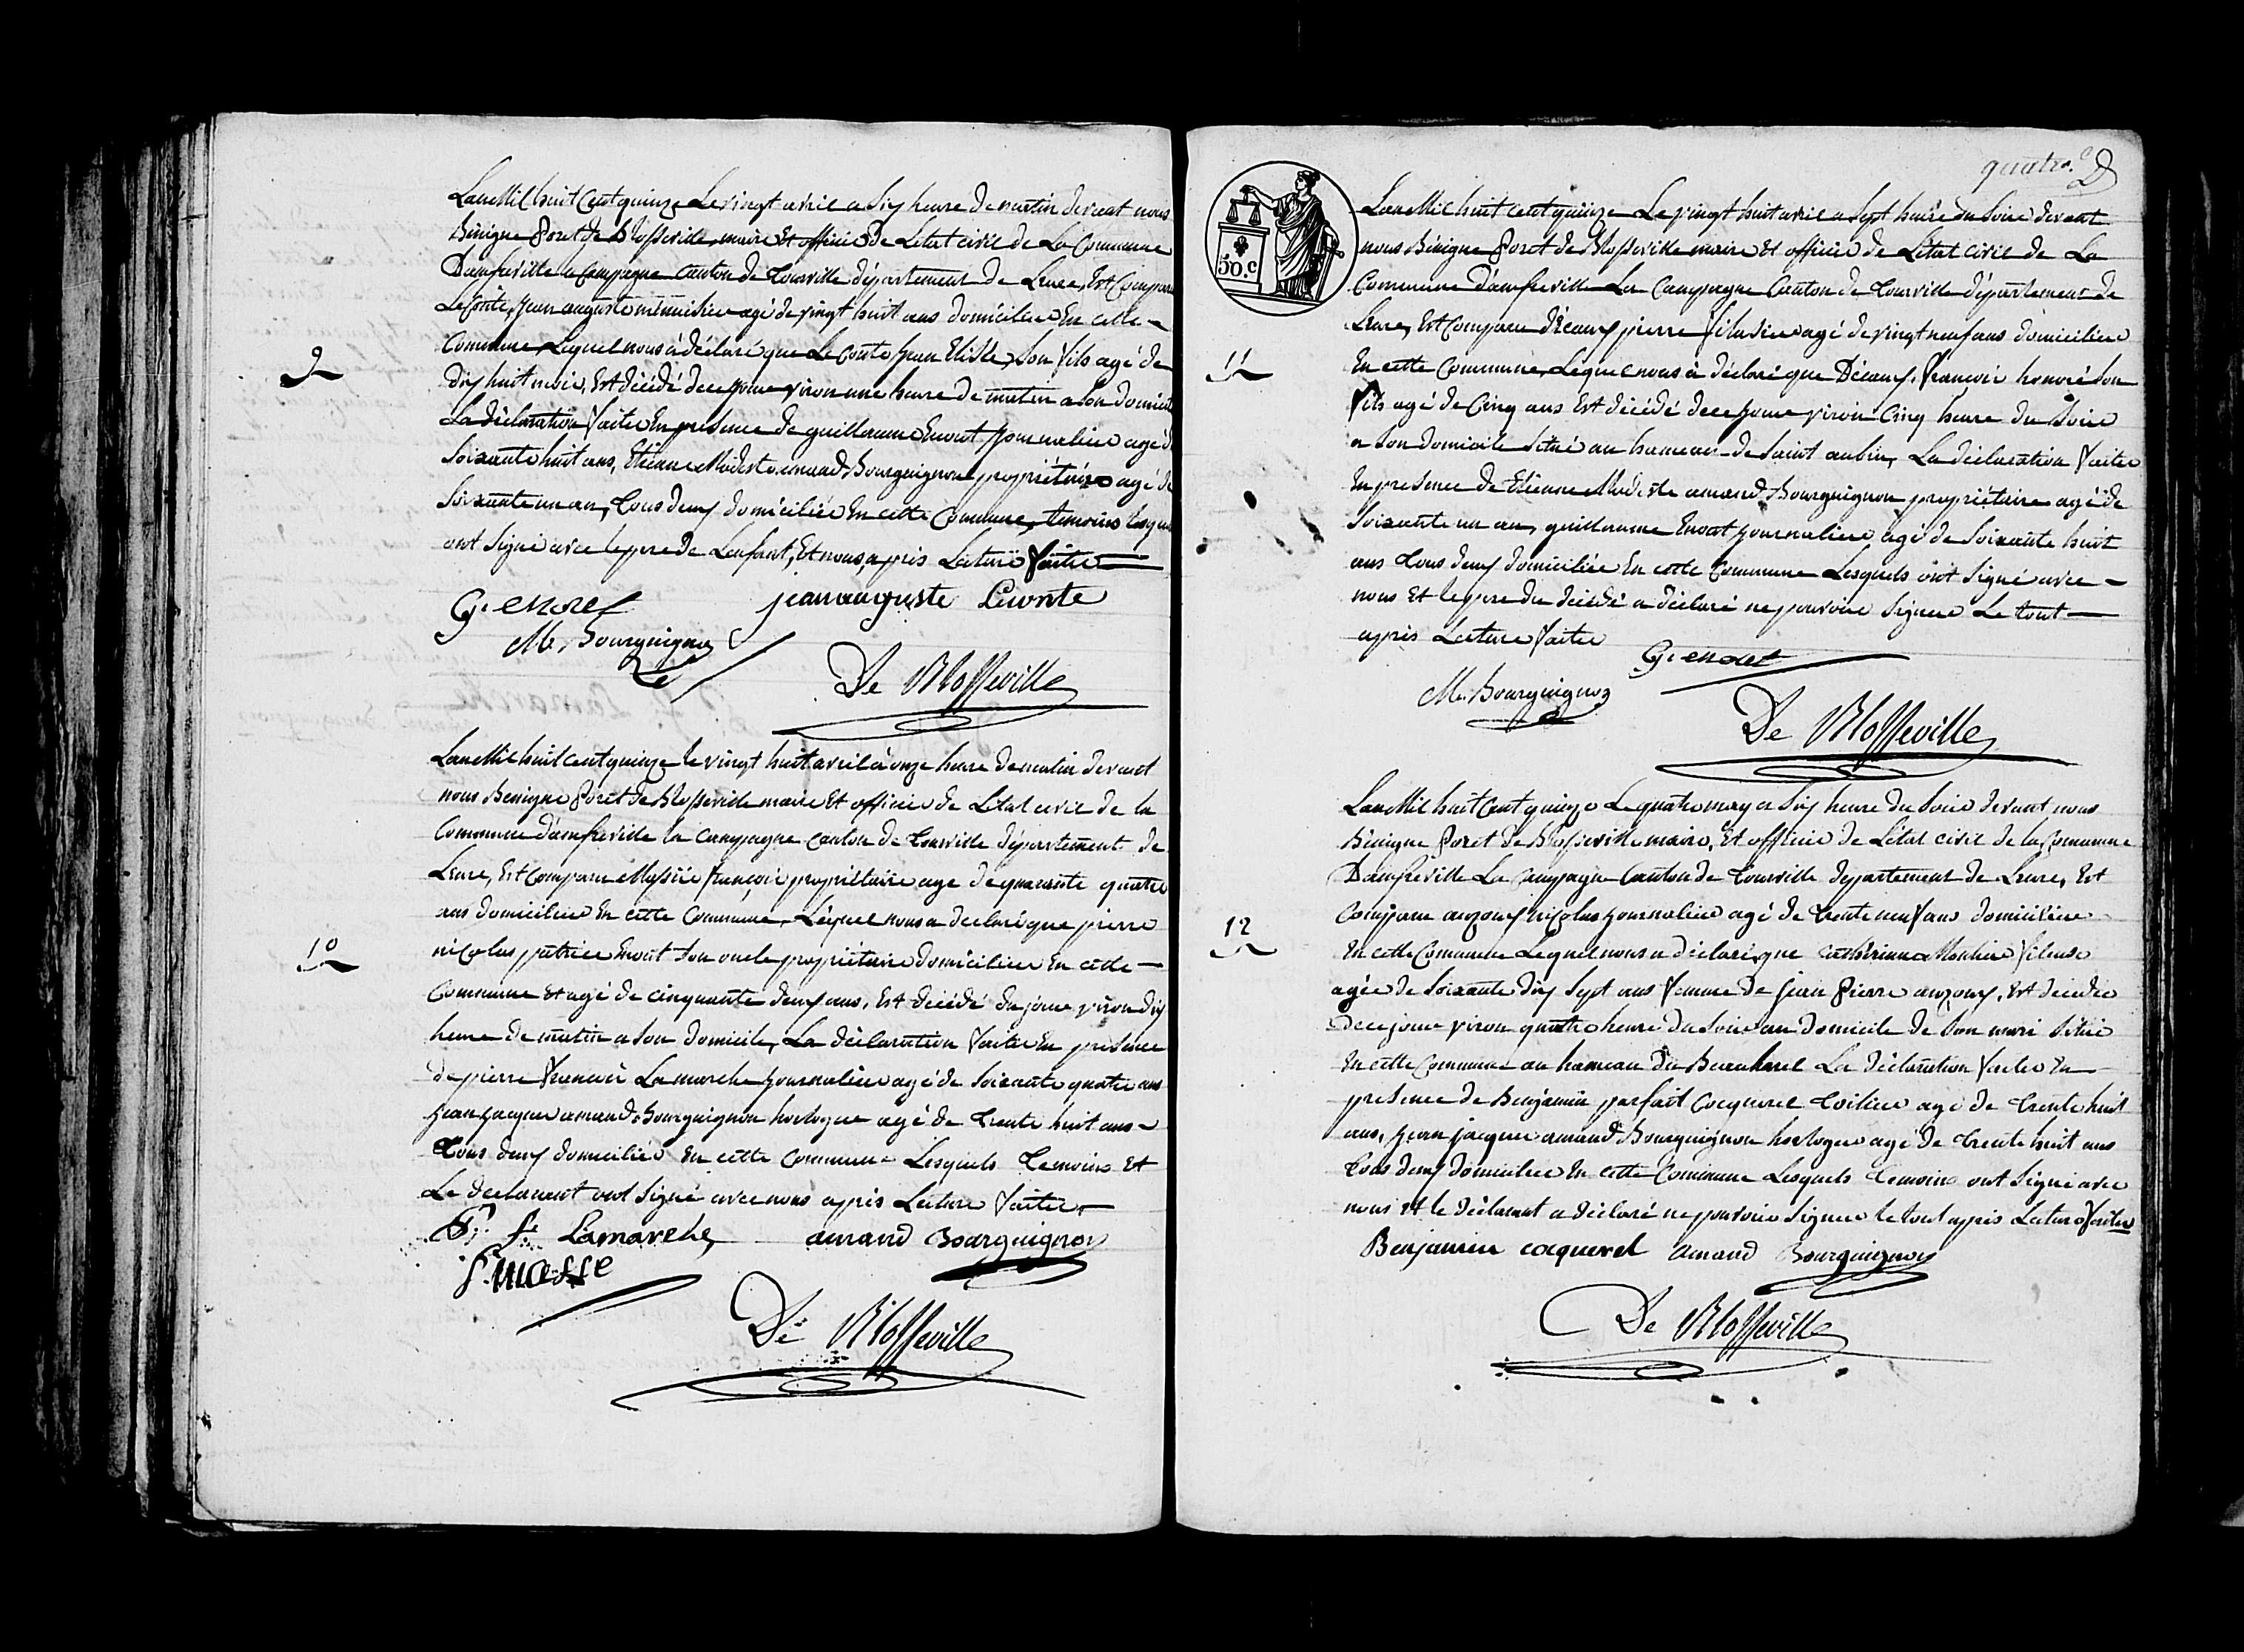 Lan Mil huit Cent quinze Le vingt avril a Six heure De matin devant nous
Bénigne Poret de Blosseville, maire Et officier De Letat civil de La Commune
Damfreville la Campagne Canton de Tourville département de Leure, Est Comparu
LeConte, Jean auguste menuisier agé de vingt huit ans domicilier En cette
Commune, Lequel nous à déclaré que Le Conte Jean Elisse, Son fils agé de
dix huit mois, Est décédé de ce jour viron une heure De matin a Son domicile
La déclaration faite En presence de guillaume Enout journalier agé de
Soixante huit ans, Etienne Modeste amand Bourguignon propriétaire agé de
Soixante un an, Tous deux domicilié En cette Commune, temoins lesquels
ont Signé avec le pere de Lenfant, Et nous, après Lecture faite
9
G. enoet
jean auguste Leconte
M. Bourguignon
De Blosseville
Lan Mil huit cent quinze le vingt huit avril à onze heure de matin devant
nous Benigne Poret de Blosseville maire Et officier de Létat civil de la
Commune d'amfreville la campagne canton de Tourville département de
Leure, Est Comparu Massée françois propriétaire age de quarante quatre
ans domicilier En cette Commune, Lequel nous a declaré que pierre
nicolas patrice Enout Son oncle propriétaire domicilier En cette
Commune Et agé de cinquante deux ans, Est décédé du jour viron dix
heure de matin a Son Domicile, La déclaration faite En presence
de pierre francois Lamarche journalier agé de Soixante quatre ans
Jean Jacque amand Bourguignon horloger agé de Trente huit ans
Tous deux domicilié En cette Commune Lesquels Temoins Et
Le declarant ont Signé avec nous après Lecture faite
10
P. f. Lamarche
amand Bourguignon
f. masse
De Blosseville
quatre
50.c
Lan Mil huit cent quinze Le vingt huit avril a Sept heure du Soire devant
nous Bénigne Poret de Blosseville maire Et officier de Létat civil de La
Commune d'amfreville La Campagne Canton de Tourville département de
Leure, Est Comparu Décaux pierre filasier agé de vingt neuf ans domicilier
En cette Commune, Lequel nous à déclaré que Décaux, francois honoré Son
fils agé de Cinq ans Est décédé de ce jour viron Cinq heure du Soire
a Son domicile Situé au hameau de Saint aubin, La déclaration faite
En presence de Etienne Modeste amand Bourguignon propriétaire agé de
Soixante un an, guillaume Enout journalier agé de Soixante huit
ans Tous deux domicilié En cette Commune Lesquels ont Signé avec
nous Et le pere du décédé a déclaré ne pouvoir Signer Le tout
après Lecture faite
11
G. enoet
M. Bourguignon
De Blosseville
Lan Mil huit Cent quinze Le quatre may a Six heure du Soire devant nous
Bénigne Poret de Blosseville maire, Et officier de Létat civil de la Commune
Damfreville La Campagne Canton de Tourville departement de Leure, Est
Comparu auzoux nicolas journalier agé de Trente neuf ans domicilier
En cette Commune Lequel nous a déclaré, que Catherinne Monlier fileuse
agée de Soixante dix Sept ans femme de Jean Pierre auzoux, Est décédée
de ce jour viron quatre heure du Soir au domicile de Son mari Situé
En cette Commune au hameau du La déclaration faite En
presence de Benjamin parfait Cocquerel Toilier agé de Trente huit
ans, Jean jacque amand Bourguignon horloger agé de Trente huit ans
Tous deux domicilier En cette Commune Lesquels Temoins ont Signé avec
nous Et le déclarant a déclaré ne pouvoir Signer le tout après Lecture faite
12
Benjamin coquerel amand Bourguignon
De Blosseville